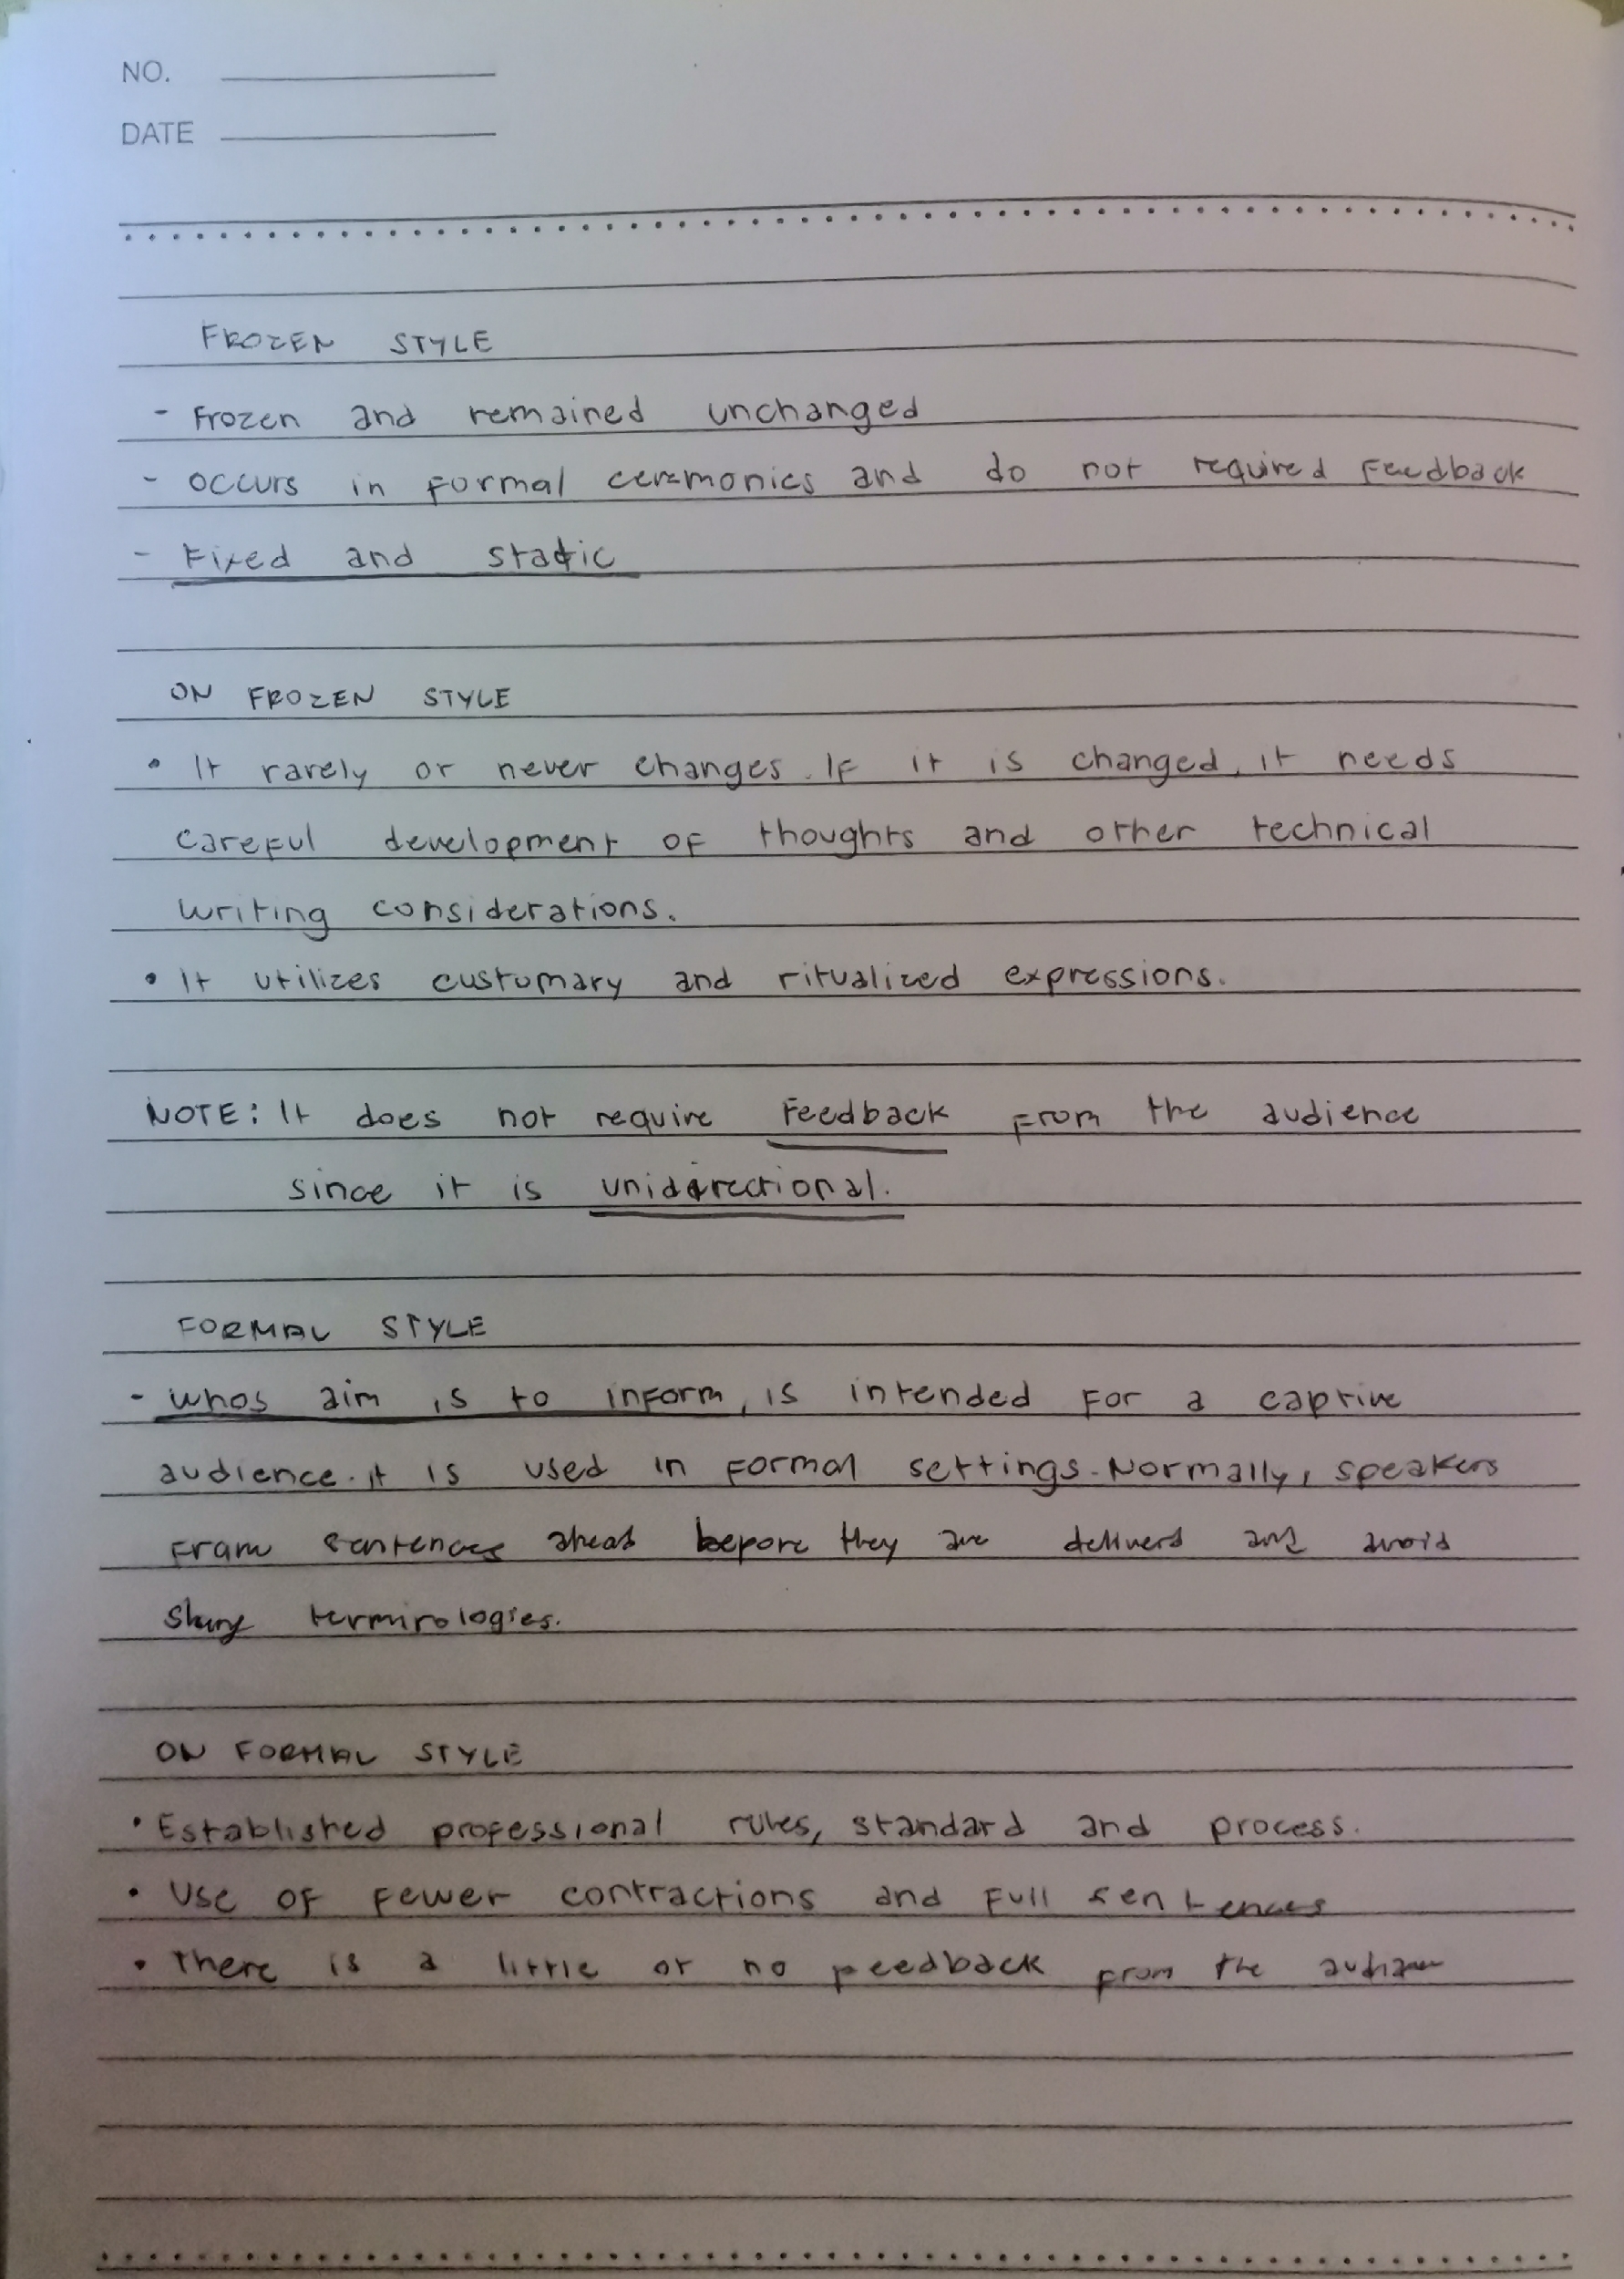 NO.
DATE
FROZEN STYLE
- Frozen and remained unchanged
- occurs in formal ceremonies and do not required Feedback
- Fixed and static
ON FROZEN STYLE
• It rarely or never changes. If it is changed, it needs
careful development of thoughts and other technical
writing considerations.
• It utilizes customary and ritualized expressions.
NOTE: It does not require Feedback from the audience
since it is unidirectional.
FORMAL STYLE
- whos aim is to inform, is intended for a captive
audience. it is used in formal settings. Normally, speakers
fram sentences ahead before they are delivered and avoid
slang terminologies.
ON FORMAL STYLE
• Established professional rules, standard and process.
• Use of fewer contractions and full sentences
• There is a little or no feedback from the audience